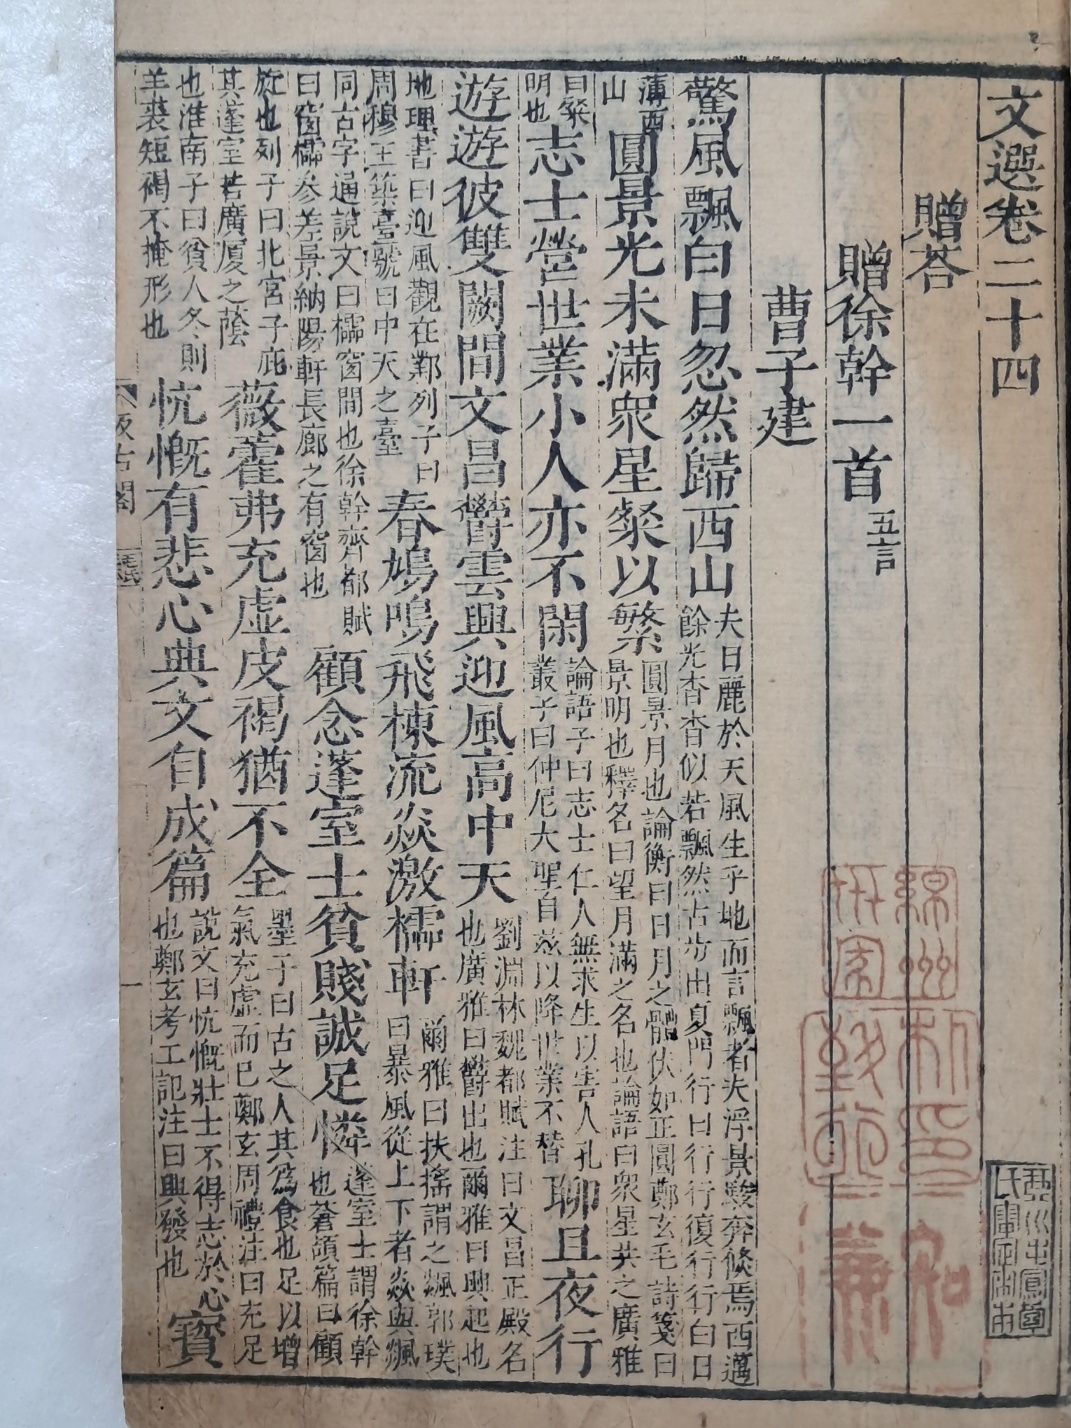 文選卷二十四
贈荅
贈徐幹一首五言
曹子建
驚風飄白日忽然歸西山夫日麗於天風生乎地而言飄者夫浮景駿奔倐焉西邁餘光杳杳似若飄然古步出夏門行曰行行復行行白日
薄西山圓景光未滿衆星粲以繁圓景月也論衡曰日月之體狀如正圓鄭玄毛詩箋曰景明也釋名曰望月滿之名也論語曰衆星共之廣雅
曰粲明也志士營世業小人亦不閑論語子曰志士仁人無求生以害人孔叢子曰仲尼大聖自兹以降世業不替聊且夜行
遊遊彼雙闕間文昌鬱雲興迎風高中天劉淵林魏都賦注曰文昌正殿名也廣雅曰鬱出也爾雅曰興起也
地理書曰迎風觀在鄴列子曰周穆王築臺號曰中天之臺春鳩鳴飛棟流猋激櫺軒爾雅曰扶摇謂之飊郭璞曰暴風從上下者猋與飊
同古字通說文曰櫺窗間也徐幹齊都賦曰窗櫺參差景納陽軒長廊之有窗也顧念蓬室士貧賤誠足憐蓬室士謂徐幹也蒼頡篇曰顧
旋也列子曰北宮子庇其蓬室若廣厦之蔭薇藿弗充虛皮褐猶不全墨子曰古之人其爲食也足以增氣充虛而已鄭玄周禮注曰充足
也淮南子曰貧人冬則羊裘短褐不掩形也忼慨有悲心興文自成篇說文曰忼慨壯士不得志於心也鄭玄考工記注曰興發也寶
汲古閣